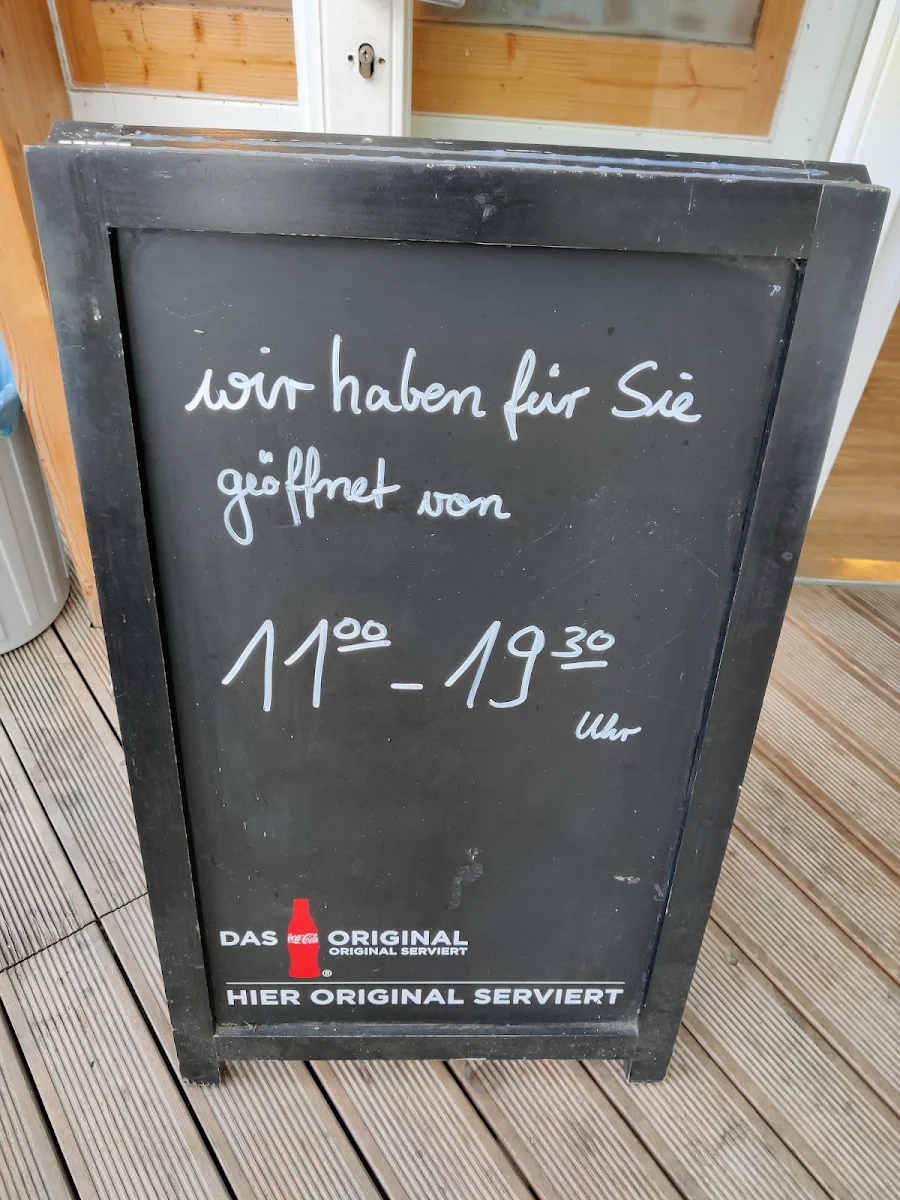 wir haben für Sie
geöffnet von
11⁰⁰ - 19³⁰
Uhr
DAS Coca-Cola ® ORIGINAL
ORIGINAL SERVIERT
HIER ORIGINAL SERVIERT